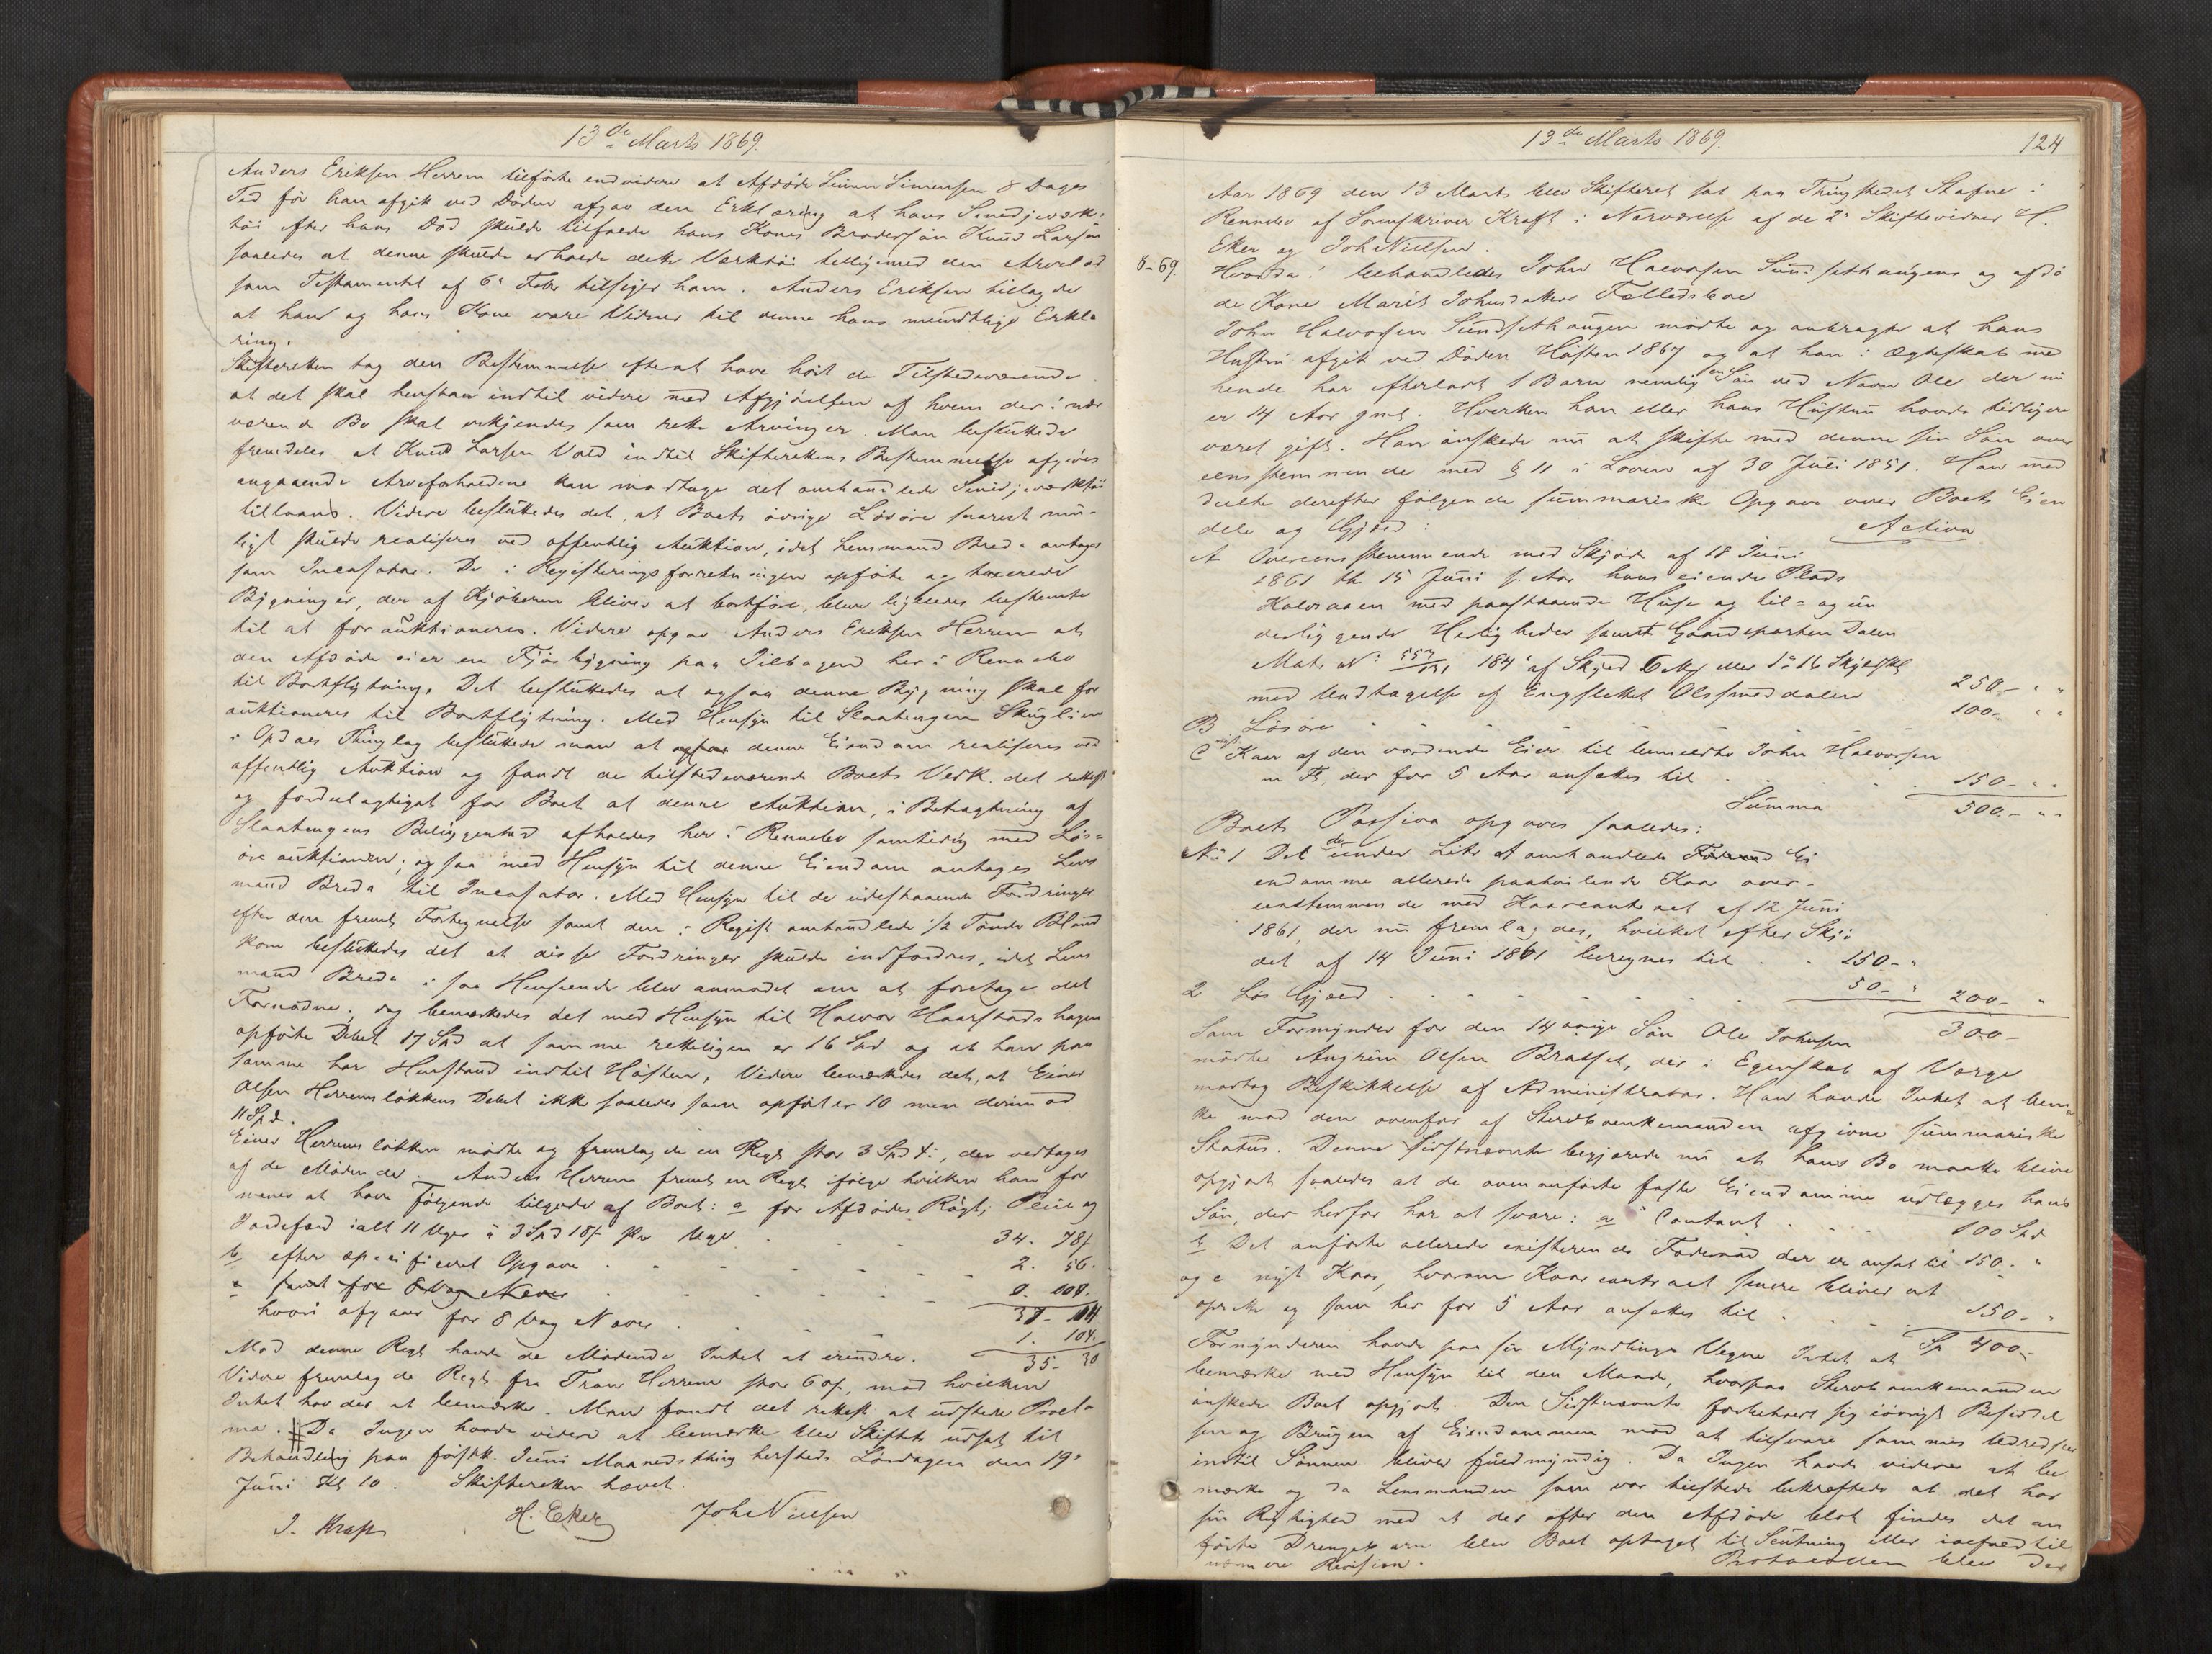 13de Marts 1869.
Anders Eriksen Herrem tilførte endvidere at Afdøde Simen Simensen 8 Dages
Tid før han afgik ved Døden afgav den Erklæring at hans Smedjeværk-
tøi efter hans Død skulde tilfalde hans Kones Brodersøn Knud Larsen
saaledes at denne skulde erholde dette Værktøi tilligemed den Arvelod
som Testamentet af 6e Febr tilsiger ham. Anders Eriksen tillagde
at han og hans Kone vare Vidner til denne hans mundtlige Erklæ
ring.
Skifteretten tog den Bestemmelse efter at have hørt de Tilstedeværende
at det skal henstaa indtil videre med Afgjørelsen af hvem der i nær
værende Bo skal erkjendes som rette Arvinger. Man besluttede
fremdeles at Knud Larsen Vold indtil Skifterettens Bestemmelse afgives
angaaende Arveforholdene kan modtage det omhandlede Smedjeværktøi
tillaans. Videre besluttedes det, at Boets øvrige Løsøre snarest mu-
ligt skulde realiseres ved offentlig Auktion, idet Lensmand Breda antages
som Incasator. De i Registreringsforretningen opførte og taxerede
Bygninger, der af Kjøberen bliver at bortføre, bleve ligeledes bestemte
til at forauktioneres. Videre opgav Anders Eriksen Herrem at
den Afdøde eier en Fjøsbygning paa Tilbagend her i Rennebo
til Bortflytning. Det besluttedes at ogsaa denne Bygning skal for
auktioneres til Bortflytning. Med Hensyn til Slaatengen Skuglien
i Opdals Thinglag besluttede man at denne Eiendom realiseres ved
offentlig Auktion og fandt de tilstedeværende Boets Vedk. det rettest
og fordeelagtigst for Boet at denne Auktion, i Betragtning af
Slaatengens Beliggenhed afholdes her i Rennebo samtidig med Løs-
øre auktionen; ogsaa med Hensyn til denne Eiendom antages Lens
mand Breda til Incasator. Med Hensyn til de udestaaende Fordringer
efter den freml. Fortegnelse samt den i Regist omhandlede 1/2 Tønde Bland
korn besluttedes det at disse Fordringer skulde indfordres, idet Lens
mand Breda i saa Henseende blev anmodet om at foretage det
Fornødne; dog bemærkedes det med Hensyn til Halvor Haarstadshagen
opførte Debet 17 Spd at samme rettelig er 16 Spd og at han paa
samme har Henstand indtil Høsten. Videre bemærkedes det, at Einer
Olsen Herremsløkkens Debet ikke saaledes som opført er 10 men derimod
11 Spd.
Einer Herremsløkken mødte og fremlagde en Regt stor 3 Spd 4 , der vedtages
af de Mødende. Anders Herrem freml en Regt ifølge hvilken han for
menes at have Følgende tilgode af Boet: a for Afdødes Røgt, Pleie og
Jordefærd ialt 11 Uger à 3 Spd 18 s pr Uge 34. 78 s
b efter specificeret Opgave 2. 56.
c samt for 8 Vog Næver 0. 108.
38- 104
hvori afgaar for 8 Vog Næver 1. 104.
35- 30
Mod denne Regt havde de Mødende Intet at erindre.
Videre fremlagde Regt fra Tron Herrem stor 60 s, mod hvilken
Intet hav des at bemærke. Man fandt det rettest at udstede Procla
ma. Da Ingen havde videre at bemærke blev Skiftet udsat til
Behandling paa førstk. Juni Maaneds thing hersteds Lørdagen den 19e
Juni Kl 10. Skifteretten hævet.
J. Kraft H. Eker Joh Nielsen
13de Marts 1869. 124
Aar 1869 den 13 Marts blev Skifteret sat paa Thingstedet Stafne i
Rennebo af Sorenskriver Kraft i Nærværelse af de 2e Skiftevidner H.
Eker og Joh Nielsen.
8-69. Hvorda: behandledes John Halvorsen Sundsethaugens og afdø
de Kone Marit Johnsdatters Fællesboe
John Halvorsen Sundsethaugen mødte og anbragte at hans
Hustru afgik ved Døden Høsten 1867 og at han i Ægteskab med
hende har efterladt 1 Barn nemlig en Søn ved Navn Ole der nu
er 14 Aar gml. Hverken han eller hans Hustru havde tidligere
været gift. Han ønskede nu at skifte med denne sin Søn over
eensstemmende med § 11 i Loven af 30 Juli 1851. Han med
deelte derefter følgende summariske Opgave over Boets Eien
dele og Gjæld: Activa
A Overeensstemmende med Skjøde af 18 Juni
1861 th 15 Juni s. Aar hans eiende Plads
Halvaaen med paastaaende Huse og til- og un
derliggende Herligheder samt Gaardeparten Dalen
Matr No 557/131 184 af Skyld 6 eller 1e 16 Skylskl
med Undtagelse af Engslettet Olssmeddalen 250- " "
B Løsøre 100- " "
C Kaar af den vordende Eier til bemeldte John Halvorsen
m Fl. der for 5 Aar ansættes til 150- " "
Summa 500- " "
Boets Passiva opgaves saaledes:
No 1 Det de under Litr A omhandlede Ei
endomme allerede paahvilende Kaar over-
eenstemmende med Kaarcontract af 12 Juni
1861, der nu fremlagdes, hvilket efter Skjø
det af 14 Juni 1861 beregnes til 150- "
2 Løs Gjæld 50- " 200- "
300-
Som Formynder for den 14 aarige Søn Ole Johnsen
mødte Angrim Olsen Brattset, der i Egenskab af Verge
modtog Beskikkelse af Administrator. Han havde Intet at bemær
ke mod den ovenfor af Sterboenkemanden afgivne summariske
Status. Denne Sidstnævnte begjærede nu at hans Bo maatte blive
opgjort saaledes at de ovenanførte faste Eiendomme udlægges hans
Søn, der herfor har at svare: a Contant 100 Spd
b Det anførte allerede existerende Føderaad der er ansat til 150. "
og c nyt Kaar, hvorom Kaarcontract senere bliver at
oprette og som her for 5 Aar ansættes til 150- "
Sp 400-
Formynderen havde paa sin Myndlings Vegne Intet at
bemærke med Hensyn til den Maade, hvorpaa Sterboenkemanden
ønskede Boet opgjort. Den Sidstnævnte forbeholdt sig iøvrigt Besiddel
sen og Brugen af Eiendommen mod at tilsvare sammes Udredsler
indtil Sønnen bliver fuldmyndig. Da Ingen havde videre at be
mærke og da Lensmanden som var tilstede bekræftede at det har
sin Rigtighed med at der efter den Afdøde blot findes det an
førte Drengebarn blev Boet optaget til Slutning eller ialfald til
nærmere Revision. Protocollen blev der